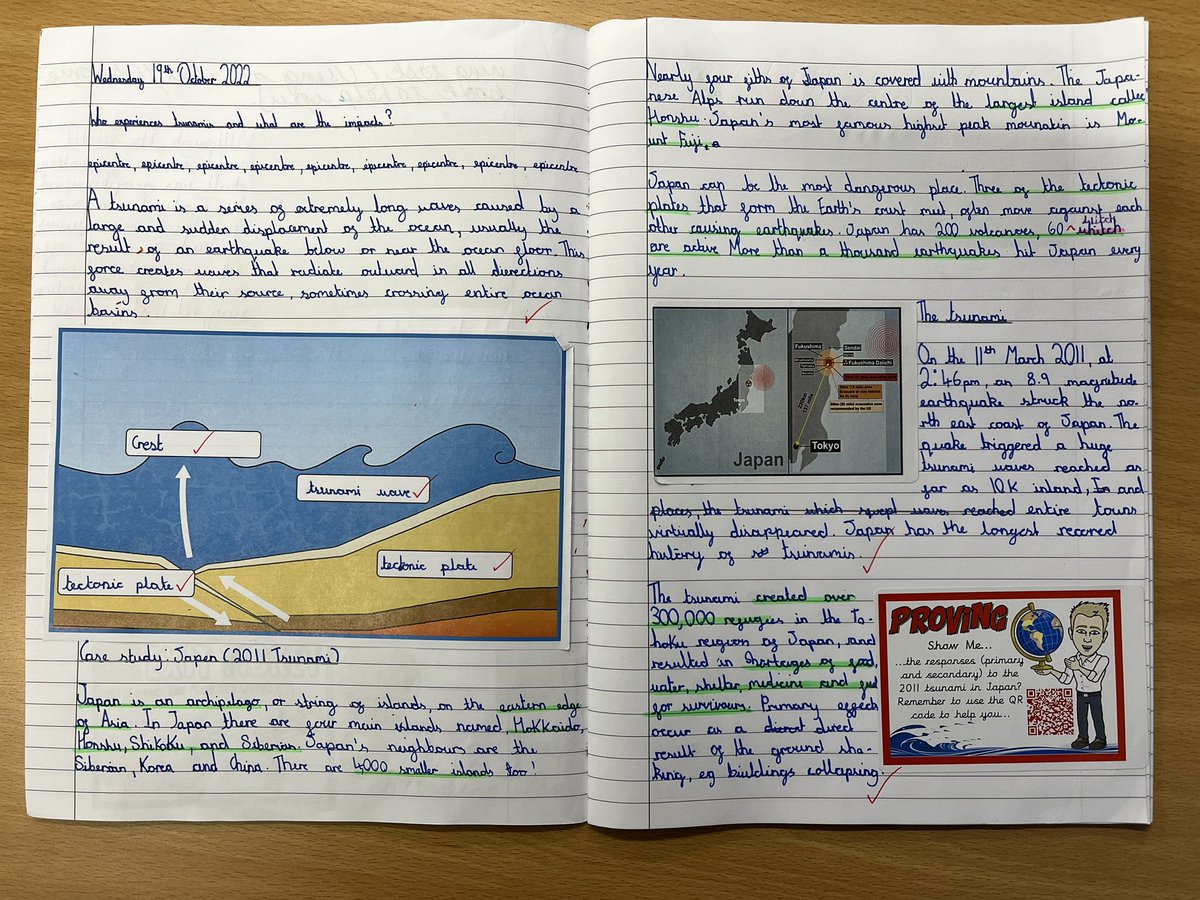 Wednesday 19th October 2022
Who experiences tsunamis and what are the impacts?
epicentre, epicentre, epicentre, epicentre, epicentre, epicentre, epicentre, epicentre, epicentre
A tsunami is a series of extremely long waves caused by a
large and sudden displacement of the ocean, usually the
result of an earthquake below or near the ocean floor. This
force creates waves that radiate outward in all directions
away from their source, sometimes crossing entire ocean
basins.
Crest
tsunami wave
tectonic plate
tectonic plate
Case study: Japan (2011 Tsunami)
Japan is an archipelago, or string of islands, on the eastern edge
of Asia. In Japan there are four main islands named, Hokkaido,
Honshu, Shikoku, and Siberian. Japan's neighbours are the
Siberian, Korea and China. There are 4,000 smaller islands too!
Nearly four fifths of Japan is covered with mountains. The Japa-
nese Alps run down the centre of the largest island called
Honshu. Japan's most famous highest peak mountain is Mo-
unt Fuji.
Japan can be the most dangerous place. Three of the tectonic
plates that form the Earth's crust met, often move against each
other causing earthquakes. Japan has 200 volcanoes, 60
are active More than a thousand earthquakes hit Japan every
year.
The tsunami
Fukushima
Sendai
Fukushima Daiichi
Tokyo
Japan
On the 11th March 2011, at
2:46pm, an 8.9 magnitude
earthquake struck the no-
rth east coast of Japan. The
quake triggered a huge
tsunami waves reached as
far as 10K inland, In and
places, the tsunami which swept waves reached entire towns
virtually disappeared. Japan has the longest recored
history of tsunamis.
The tsunami created over
300,000 refugies in the To-
hoku reigion of Japan, and
resulted in shortages of food,
water, shelter, medicine and fuel
for survivours. Primary effects
occur as a direct direct
result of the ground sha-
king, eg buildings collapsing.
PROVING
Show Me...
...the responses (primary
and secondary) to the
2011 tsunami in Japan?
Remember to use the QR
code to help you...